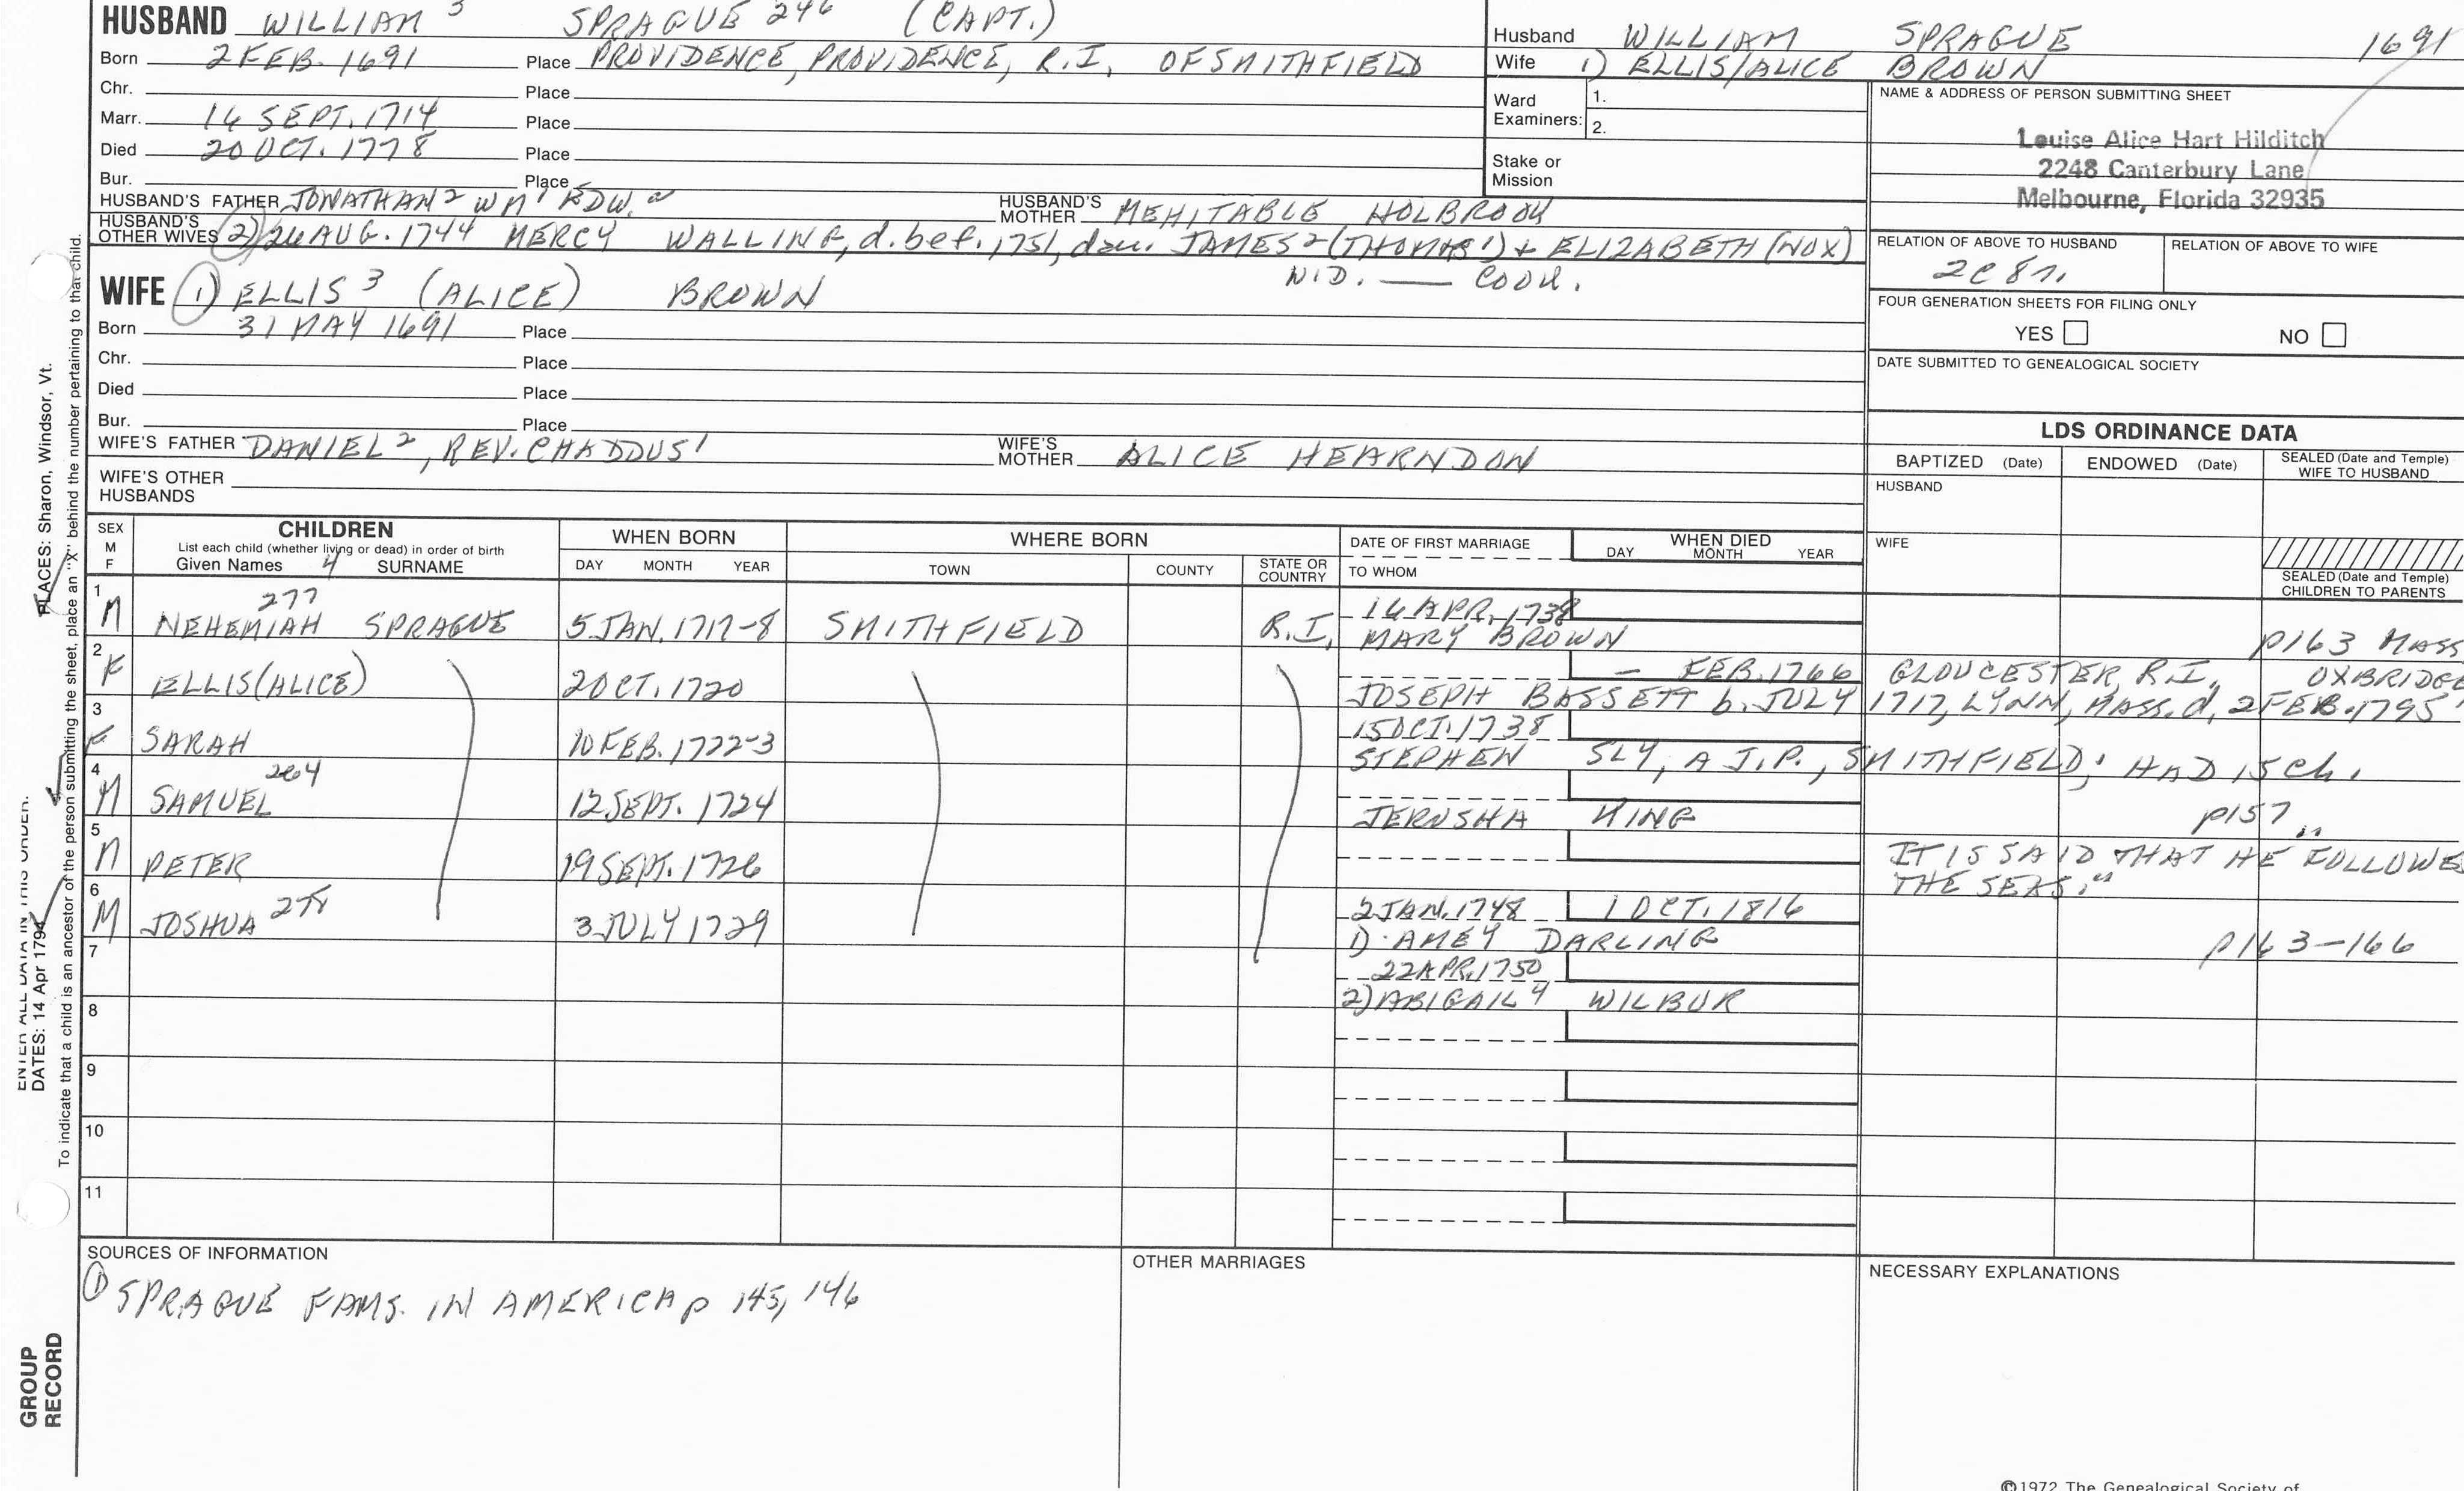 HUSBAND WILLIAM 3 SPRAGUE 246 (CAPT.)
Born 2 FEB. 1691 Place PROVIDENCE, PROVIDENCE, R.I. OF SMITHFIELD
Chr. Place
Marr. 16 SEPT. 1714 Place
Died 20 OCT. 1778 Place
Bur. Place
HUSBAND'S FATHER JONATHAN 2 WM 1 EDW. HUSBAND'S MOTHER MEHITABLE HOLBROOK
HUSBAND'S OTHER WIVES (2) 26 AUG. 1744 MERCY WALLING, d. bef. 1751, dau. JAMES 2 (THOMAS 1) + ELIZABETH (NOX)
N.D. — COOK.
WIFE (1) ELLIS 3 (ALICE) BROWN
Born 31 MAY 1691 Place
Chr. Place
Died Place
Bur. Place
WIFE'S FATHER DANIEL 2, REV. CHADDUS 1 WIFE'S MOTHER ALICE HEARNDON
WIFE'S OTHER HUSBANDS
Husband WILLIAM SPRAGUE 1691
Wife 1) ELLIS/ALICE BROWN
Ward Examiners: 1.
2.
Stake or Mission
NAME & ADDRESS OF PERSON SUBMITTING SHEET
Louise Alice Hart Hilditch
2248 Canterbury Lane
Melbourne, Florida 32935
RELATION OF ABOVE TO HUSBAND RELATION OF ABOVE TO WIFE
2C 8r.
FOUR GENERATION SHEETS FOR FILING ONLY
YES NO
DATE SUBMITTED TO GENEALOGICAL SOCIETY
LDS ORDINANCE DATA
BAPTIZED (Date) ENDOWED (Date) SEALED (Date and Temple) WIFE TO HUSBAND
HUSBAND
WIFE
SEALED (Date and Temple) CHILDREN TO PARENTS
SEX M F
CHILDREN
List each child (whether living or dead) in order of birth
Given Names 4 SURNAME
WHEN BORN
DAY MONTH YEAR
WHERE BORN
TOWN COUNTY STATE OR COUNTRY
DATE OF FIRST MARRIAGE
TO WHOM
WHEN DIED
DAY MONTH YEAR
1 M NEHEMIAH 277 SPRAGUE 5 JAN. 1717-8 SMITHFIELD R.I. 16 APR. 1738
MARY BROWN p163 MASS
2 F ELLIS (ALICE) 2 OCT. 1720 — FEB. 1766 GLOUCESTER, R.I. OXBRIDGE
JOSEPH BASSETT b. JULY 1717, LYNN, MASS. d. 2 FEB. 1795
3 F SARAH 10 FEB. 1722-3 15 OCT. 1738
STEPHEN SLY, A J.P., SMITHFIELD; HAD 15 ch.
4 M SAMUEL 264 12 SEPT. 1724
JERUSHA KING p157
5 M PETER 19 SEPT. 1726 IT IS SAID THAT HE FOLLOWE
THE SEAS."
6 M JOSHUA 278 3 JULY 1729 2 JAN. 1748 1 OCT. 1816
1) AMEY DARLING p163-166
7 22 APR. 1750
2) ABIGAIL 4 WILBUR
8
9
10
11
SOURCES OF INFORMATION
(1) SPRAGUE FAMS. IN AMERICA p 145, 146
OTHER MARRIAGES
NECESSARY EXPLANATIONS
©1972 The Genealogical Society of
To indicate that a child is an ancestor of the person submitting the sheet, place an "X" behind the number pertaining to that child.
PLACES: Sharon, Windsor, Vt.
ENTER ALL DATA IN THIS ORDER:
DATES: 14 Apr 1794
GROUP
RECORD